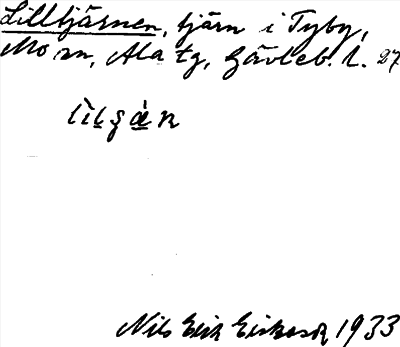 Lilltjärnen, tjärn i Tyby,
Mo sn, Ala tg, Gävleb. l. 27
Nils Erik Eriksson 1933